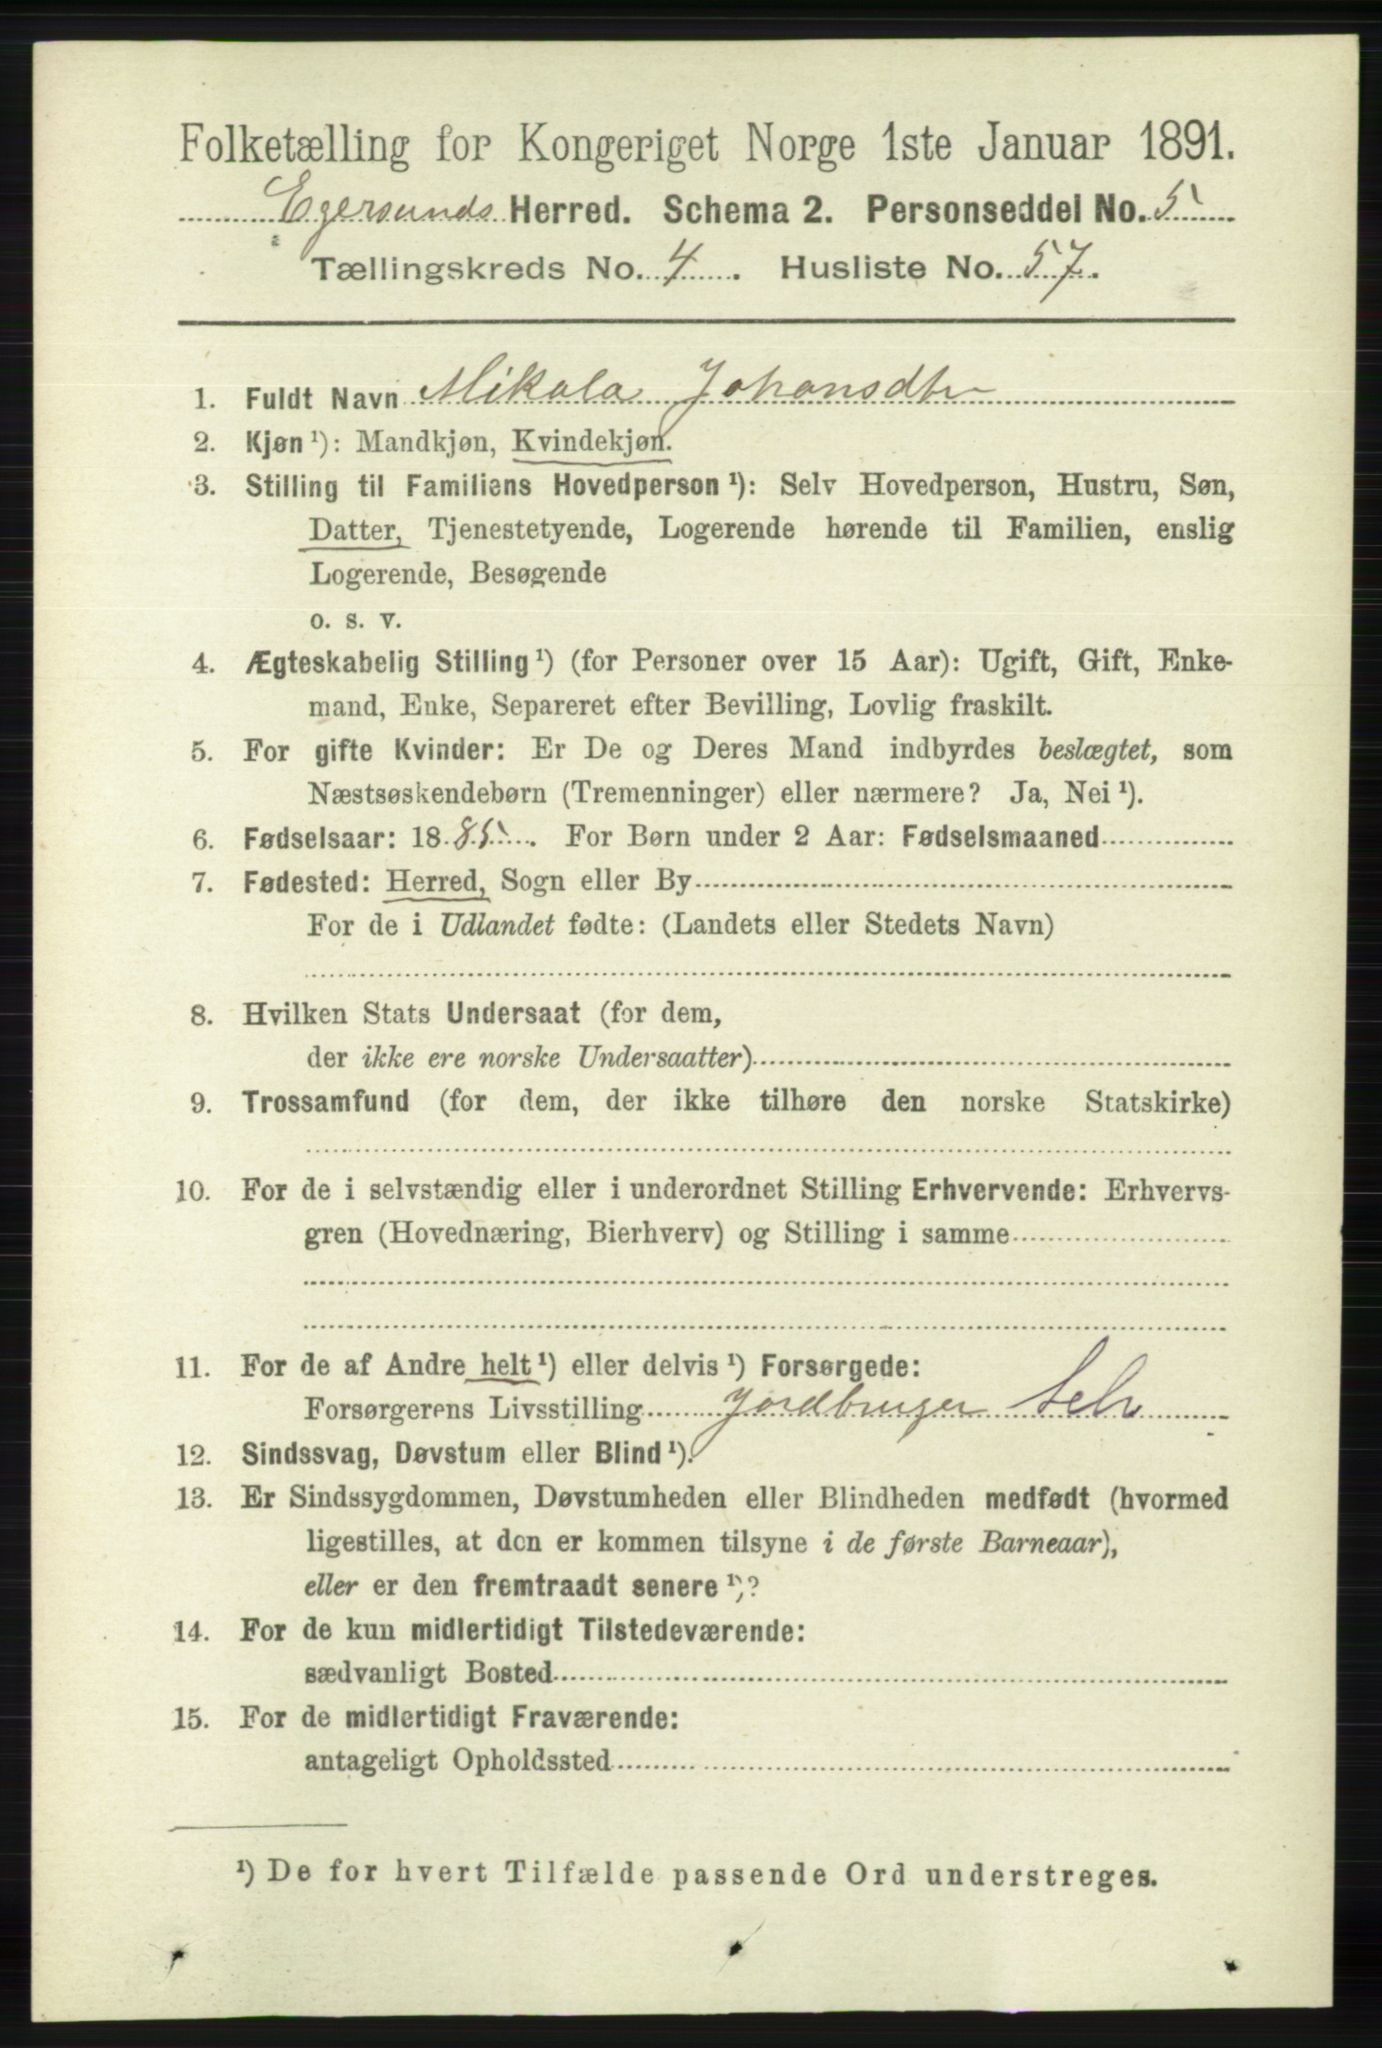 Folketælling for Kongeriget Norge 1ste Januar 1891.
Egersunds Herred. Schema 2. Personseddel No. 5
Tællingskreds No. 4. Husliste No. 57.
1. Fuldt Navn Mikala Johansdtr
2. Kjøn¹): Mandkjøn, Kvindekjøn.
3. Stilling til Familiens Hovedperson¹): Selv Hovedperson, Hustru, Søn,
Datter, Tjenestetyende, Logerende hørende til Familien, enslig
Logerende, Besøgende
o. s. v.
4. Ægteskabelig Stilling¹) (for Personer over 15 Aar): Ugift, Gift, Enke-
mand, Enke, Separeret efter Bevilling, Lovlig fraskilt.
5. For gifte Kvinder: Er De og Deres Mand indbyrdes beslægtet, som
Næstsøskendebørn (Tremenninger) eller nærmere? Ja, Nei¹).
6. Fødselsaar: 1885. For Børn under 2 Aar: Fødselsmaaned
7. Fødested: Herred, Sogn eller By
For de i Udlandet fødte: (Landets eller Stedets Navn)
8. Hvilken Stats Undersaat (for dem,
der ikke ere norske Undersaatter)
9. Trossamfund (for dem, der ikke tilhøre den norske Statskirke)
10. For de i selvstændig eller i underordnet Stilling Erhvervende: Erhvervs-
gren (Hovednæring, Bierhverv) og Stilling i samme
11. For de af Andre helt¹) eller delvis¹) Forsørgede:
Forsørgerens Livsstilling Jordbruger Selv
12. Sindssvag, Døvstum eller Blind¹).
13. Er Sindssygdommen, Døvstumheden eller Blindheden medfødt (hvormed
ligestilles, at den er kommen tilsyne i de første Barneaar),
eller er den fremtraadt senere¹)?
14. For de kun midlertidigt Tilstedeværende:
sædvanligt Bosted
15. For de midlertidigt Fraværende:
antageligt Opholdssted
¹) De for hvert Tilfælde passende Ord understreges.